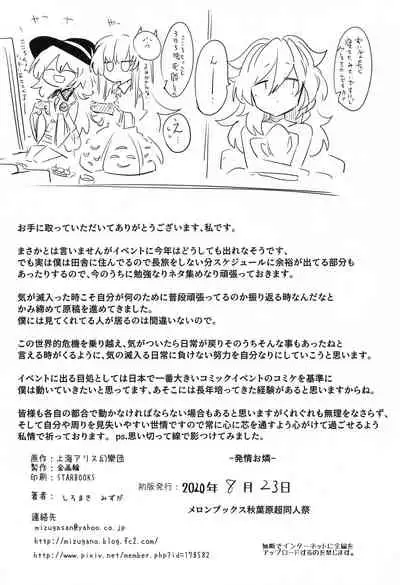 お手に取っていただいてありがとうございます、私です。
まさかとは言いませんがイベントに今年はどうしても出れなそうです、
でも実は僕は田舎に住んでるので長旅をしない分スケジュールに余裕が出てる部分も
あったりするので、今のうちに勉強なりネタ集めなり頑張っておきます。
気が滅入った時こそ自分が何のために普段頑張ってるのか振り返る時なんだなと
かみ締めて原稿を進めてきました。
僕には見てくれてる人が居るのは間違いないので。
この世界的危機を乗り越え、気がついたら日常が戻りそのうちそんな事もあったねと
言える時がくるように、気の滅入る日常に負けない努力を自分なりにしていこうと思います。
イベントに出る目処としては日本で一番大きいコミックイベントのコミケを基準に
僕は動いていきたいと思ってます、あそこには長年培ってきた経験があると思いますからね。
皆様も各自の都合で動かなければならない場合もあると思いますがくれぐれも無理をなさらず、
そして自分や周りを見失いやすい世情ですので常に心に芯を通すよう心がけて過ごせるよう
私情で祈っております。 ps.思い切って線で影つけてみました。
原作:上海アリス幻樂団
製作:金画輪
印刷:STARBOOKS
著者:しろまさ みずが
連絡先
mizugasan@yahoo.co.jp
http://mizugano.blog.fc2.com/
http://www.pixiv.net/member.php?id=178582
-発情お燐-
初版発行: 2020年 8月23日
メロンブックス秋葉原超同人祭
無断でインターネットに全編を
アップロードするのを禁じます。